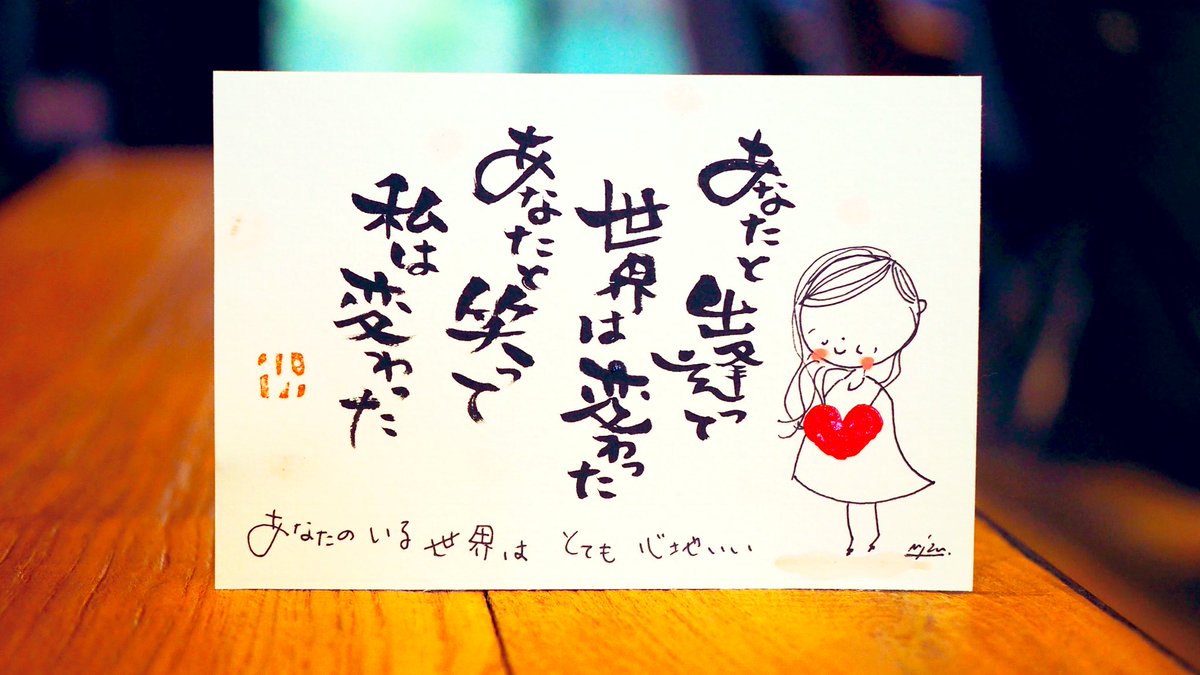 あなたと出逢って
世界は変わった
あなたと笑って
私は変わった
あなたのいる世界は とても 心地いい